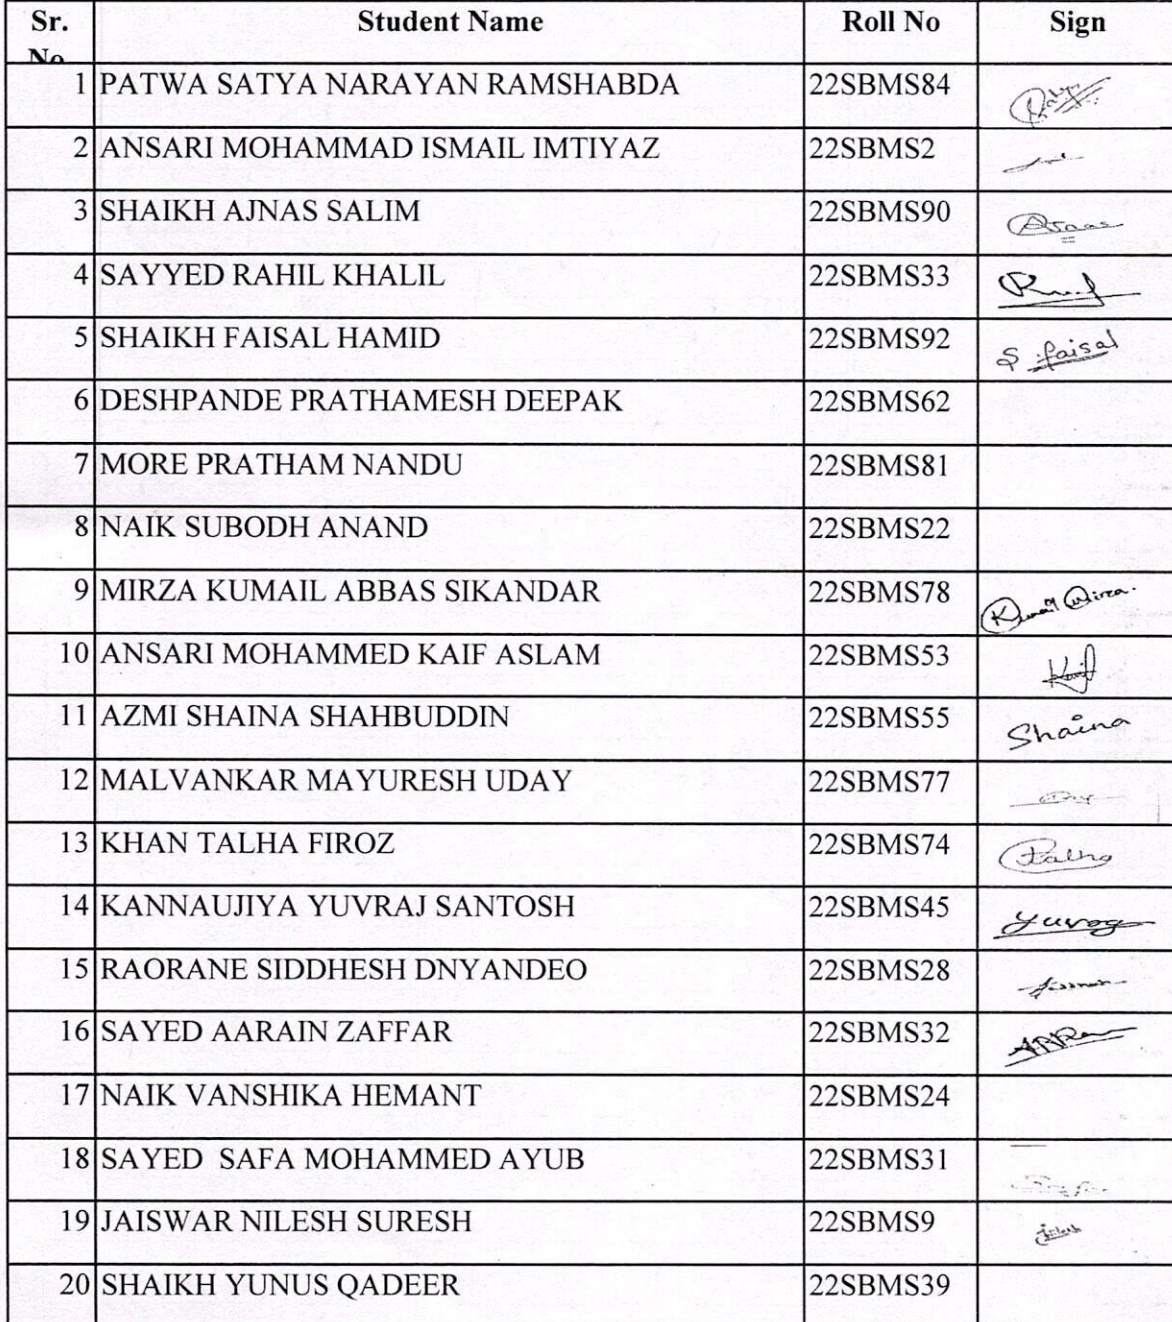 Sr. No Student Name Roll No Sign
1 PATWA SATYA NARAYAN RAMSHABDA 22SBMS84
2 ANSARI MOHAMMAD ISMAIL IMTIYAZ 22SBMS2
3 SHAIKH AJNAS SALIM 22SBMS90
4 SAYYED RAHIL KHALIL 22SBMS33
5 SHAIKH FAISAL HAMID 22SBMS92 S faisal
6 DESHPANDE PRATHAMESH DEEPAK 22SBMS62
7 MORE PRATHAM NANDU 22SBMS81
8 NAIK SUBODH ANAND 22SBMS22
9 MIRZA KUMAIL ABBAS SIKANDAR 22SBMS78 Kumail Mirza.
10 ANSARI MOHAMMED KAIF ASLAM 22SBMS53 Kaif
11 AZMI SHAINA SHAHBUDDIN 22SBMS55 Shaina
12 MALVANKAR MAYURESH UDAY 22SBMS77
13 KHAN TALHA FIROZ 22SBMS74 Talha
14 KANNAUJIYA YUVRAJ SANTOSH 22SBMS45
15 RAORANE SIDDHESH DNYANDEO 22SBMS28
16 SAYED AARAIN ZAFFAR 22SBMS32
17 NAIK VANSHIKA HEMANT 22SBMS24
18 SAYED SAFA MOHAMMED AYUB 22SBMS31
19 JAISWAR NILESH SURESH 22SBMS9
20 SHAIKH YUNUS QADEER 22SBMS39